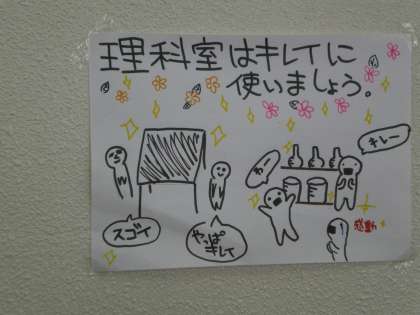 理科室はキレイに
使いましょう。
キレー
わ〜
スゴイ
やっぱ
キレイ
感動